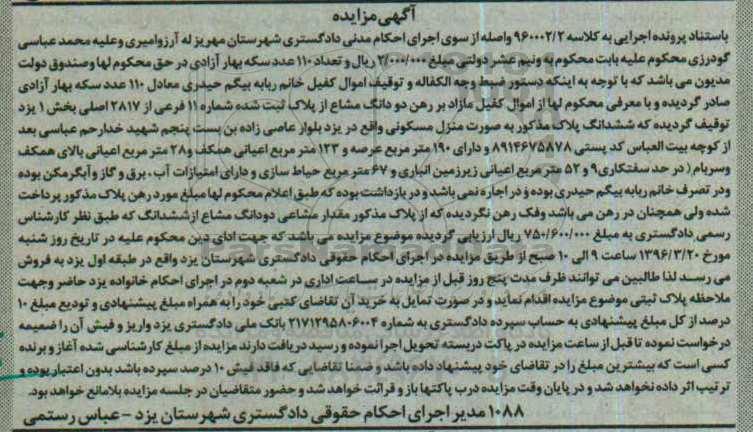 آگهی مزایده
باستناد پرونده اجرایی به کلاسه ۹۶۰۰۰۲/۲ واصله از سوی اجرای احکام مدنی دادگستری شهرستان مهریز له آرزو امیری و علیه محمد عباسی
گودرزی محکوم علیه بابت محکوم به ونیم عشر دولتی مبلغ ۲/۰۰۰/۰۰۰ ریال و تعداد ۱۱۰ عدد سکه بهار آزادی در حق محکوم لها وصندوق دولت
مدیون می باشد که با توجه به اینکه دستور ضبط وجه الکفاله و توقیف اموال کفیل خانم ربابه بیگم حیدری معادل ۱۱۰ عدد سکه بهار آزادی
صادر گردیده و با معرفی محکوم لها از اموال کفیل مازاد بر رهن دو دانگ مشاع از پلاک ثبت شده شماره ۱۱ فرعی از ۲۸۱۷ اصلی بخش ۱ یزد
توقیف گردیده که ششدانگ پلاک مذکور به صورت منزل مسکونی واقع در یزد بلوار عاصی زاده بن بست پنجم شهید خدارحم عباسی بعد
از کوچه بیت العباس کد پستی ۸۹۱۴۶۷۵۸۷۸ و دارای ۱۹۰ متر مربع عرصه و ۱۲۳ متر مربع اعیانی همکف و۲۸ متر مربع اعیانی بالای همکف
وسربام ( در حد سفتکاری۹ و ۵۲ متر مربع اعیانی زیرزمین انباری و ۶۷ متر مربع حیاط سازی و دارای امتیازات آب ، برق و گاز و آبگرمکن بوده
ودر تصرف خانم ربابه بیگم حیدری بوده و در اجاره نمی باشد و در بازداشت بوده که طبق اعلام محکوم لها مبلغ مورد رهن پلاک مذکور پرداخت
شده ولی همچنان در رهن می باشد وفک رهن نگردیده که از پلاک مذکور مقدار مشاعی دودانگ مشاع از ششدانگ که طبق نظر کارشناس
رسمی دادگستری به مبلغ ۷۵۰/۶۰۰/۰۰۰ ریال ارزیابی گردیده موضوع مزایده می باشد که جهت ادای دین محکوم علیه در تاریخ روز شنبه
مورخ ۱۳۹۶/۳/۲۰ ساعت ۹ الی ۱۰ صبح از طریق مزایده در اجرای احکام حقوقی دادگستری شهرستان یزد واقع در طبقه اول یزد به فروش
می رسد لذا طالبین می توانند ظرف مدت پنج روز قبل از مزایده در ساعت اداری در شعبه دوم در اجرای احکام خانواده یزد حاضر وجهت
ملاحظه پلاک ثبتی موضوع مزایده اقدام نماید و در صورت تمایل به خرید آن تقاضای کتبی خود را به همراه مبلغ پیشنهادی و تودیع مبلغ ۱۰
درصد از کل مبلغ پیشنهادی به حساب سپرده دادگستری به شماره ۲۱۷۱۲۹۵۸۰۶۰۰۴ بانک ملی دادگستری یزد واریز و فیش آن را ضمیمه
درخواست نموده تا قبل از ساعت مزایده در پاکت دربسته تحویل اجرا نموده و رسید دریافت دارند مزایده از مبلغ کارشناسی شده آغاز و برنده
کسی است که بیشترین مبلغ را در تقاضای خود پیشنهاد داده باشد و ضمنا تقاضایی که فاقد فیش ۱۰ درصد سپرده باشد بدون اعتبار بوده و
ترتیب اثر داده نخواهد شد و در پایان وقت مزایده درب پاکتها باز و قرائت خواهد شد و حضور متقاضیان در جلسه مزایده بلامانع خواهد بود.
۱۰۸۸ مدیر اجرای احکام حقوقی دادگستری شهرستان یزد - عباس رستمی